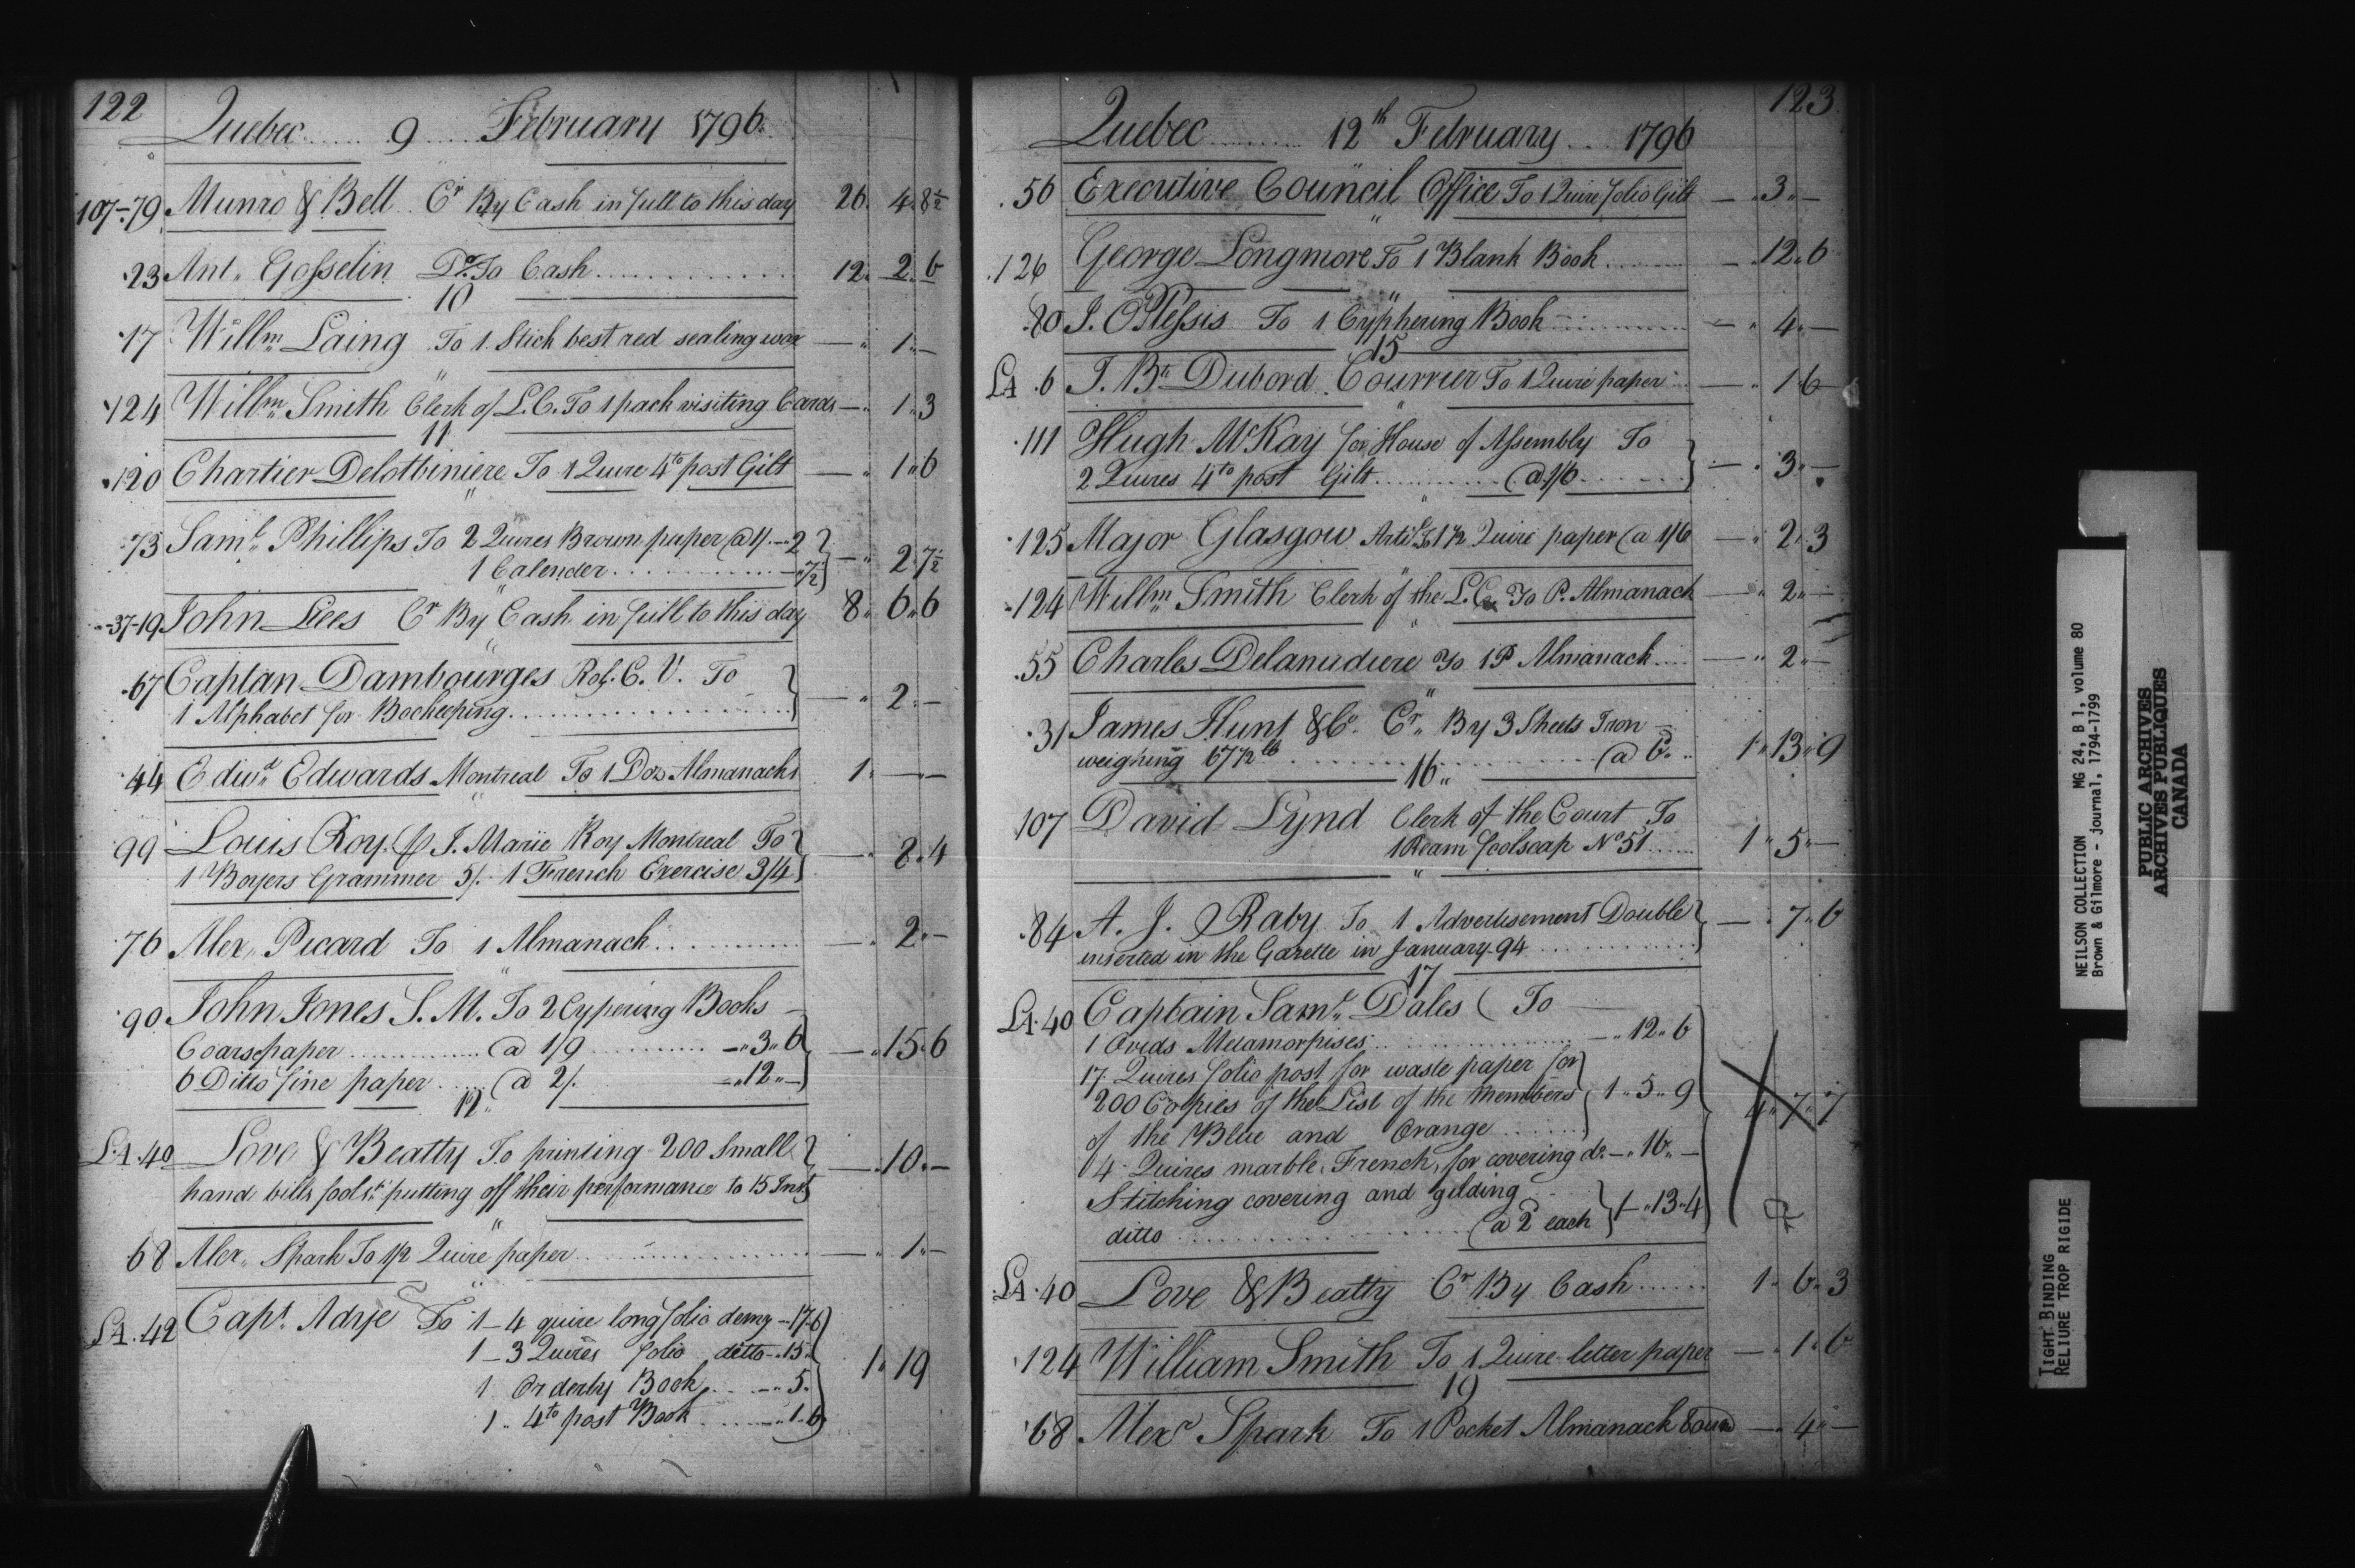 122
Quebec ...... 9 .... February 1796.
107-79 Munro & Bell .. Cr By Cash in full to this day 26. 4. 8½
23 Ant. Gosselin Dr. To Cash ............ 12. 2. 6
10
17 Willm. Laing To 1 Stick best red sealing wax — " 1 " —
"
124 Willm. Smith Clerk of L.C. To 1 pack visiting Cards — " 1 " 3
11
120 Chartier Delotbiniere To 1 Quire 4to post Gilt — " 1 " 6
"
73 Saml. Phillips To 2 Quires Brown paper @ 1/. — 2 } — " 2. 7½
1 Calender ............ — " 7½ }
37-19 John Lees Cr By Cash in full to this day 8 " 6 " 6
"
67 Captan Dambourges Rol. C. V. To } — " 2. —
1 Alphabet for Bockeeping ............ }
44 Edwd. Edwards Montreal To 1 Doz Almanacks 1. — " —
"
99 Louis Roy. ⅌ J. Marie Roy Montreal To } — " 8. 4
1 Boyers Grammer 5/. 1 French Exercise 3/4 }
76 Alex. Picard To 1 Almanack ............ — " 2. —
"
90 John Jones S. M. To 2 Cypering Books —
Coarse paper ............ @ 1/9 ............ — " 3 " 6 } — " 15. 6
6 Ditto fine paper ..... @ 2/. — " 12 " — }
12 "
LA. 40 Love & Beatty To printing 200 Small } — . 10. —
hand bills foolsp. putting off their performance to 15 Inst }
"
68 Alex. Spark To 1/2 Quire paper ............ — " 1 " —
"
LA. 42 Capt. Adye To 1 — 4 quire long folio demy — 17-6 }
1 — 3 Quires folio ditto — . 15 " } 1 " 19
1 Orderly Book .... — " 5. }
1 .. 4to post Book ....... — " 1. 6 }
123
Quebec .......... 12th February ... 1796
56 Executive Council Office To 1 Quire folio Gilt — " 3 " —
"
126 George Longmore To 1 Blank Book ........ — . 12 " 6
"
80 J. OPlessis To 1 Cyphering Book ............ — " 4. —
15
LA. 6 J. Bte Dubord Courrier To 1 Quire paper ... — " 1 6
"
111 Hugh McKay for House of Assembly To } — . 3 " —
2 Quires 4to post Gilt ............ @ 1/6 ...... }
"
125 Major Glasgow Artil. To 1 1/2 Quire paper @ 1/6 — " 2. 3
"
124 Willm. Smith Clerk of the L.C. To P. Almanack — " 2 " —
"
55 Charles Delanudiere To 1 P Almanack .... — " 2 " —
"
31 James Hunt & Co. Cr. By 3 Sheets Iron —
weighing 67 1/2 lb ............ @ 6. .. 1 " 13 " 9
16 "
107 David Lynd Clerk of the Court To
1 Ream foolscap No 51 ...... 1 " 5 " —
"
84 A. J. Raby To 1 Advertisement Double } — . 7 " 6
inserted in the Gazette in January 94 ............ }
17
LA. 40 Captain Saml. Dales ( To —
1 Ovids Metamorpises ............ — " 12 " 6
17 Quires folio post for waste paper for }
200 Copies of the List of the Members } 1 " 5 " 9
of the Blue and Orange ........ }
4 Quires marble French, for covering do. — " 16 " — 4 " 7 " 7
Stitching covering and gilding ... } 1 — " 13 " 4
ditto ............ @ 2 each }
LA. 40 Love & Beatty Cr By Cash ...... 1. 6. 3
124 William Smith To 1 Quire letter paper — . 1 " 6
19
68 Alexr Spark To 1 Pocket Almanack Bound — . 4 " —
NEILSON COLLECTION MG 24, B 1, volume 80
Brown & Gilmore - journal, 1794-1799
PUBLIC ARCHIVES
ARCHIVES PUBLIQUES
CANADA
TIGHT BINDING
RELIURE TROP RIGIDE